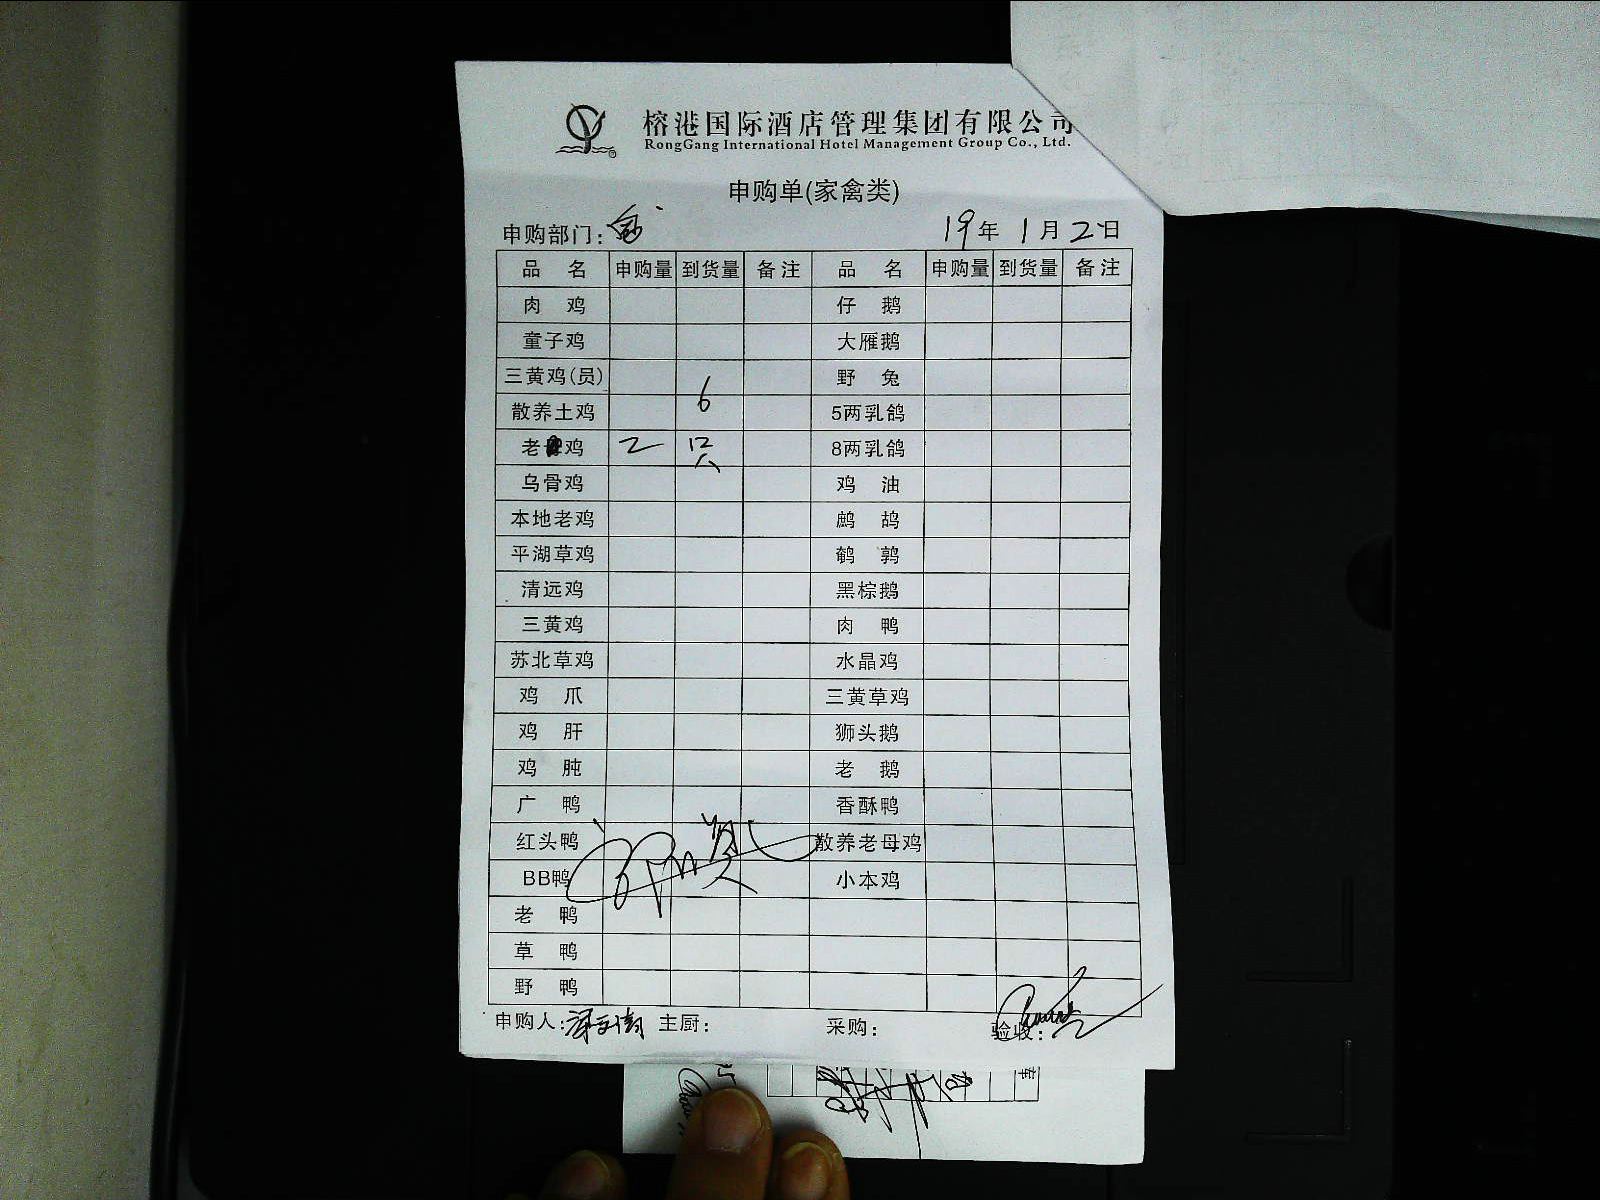 榕港国际酒店管理集团有限公司
RongGang International Hotel Management Group Co., Ltd.
申购单(家禽类)
申购部门: 19年 1月 2日
品 名 申购量 到货量 备注 品 名 申购量 到货量 备注
肉 鸡 仔 鹅
童子鸡 大雁鹅
三黄鸡(员) 野 兔
散养土鸡 6 5两乳鸽
老 鸡 2 只 8两乳鸽
乌骨鸡 鸡 油
本地老鸡 鹧 鸪
平湖草鸡 鹌 鹑
清远鸡 黑棕鹅
三黄鸡 肉 鸭
苏北草鸡 水晶鸡
鸡 爪 三黄草鸡
鸡 肝 狮头鹅
鸡 肫 老 鹅
广 鸭 香酥鸭
红头鸭 散养老母鸡
BB鸭 小本鸡
老 鸭
草 鸭
野 鸭
申购人: 主厨: 采购: 验收: